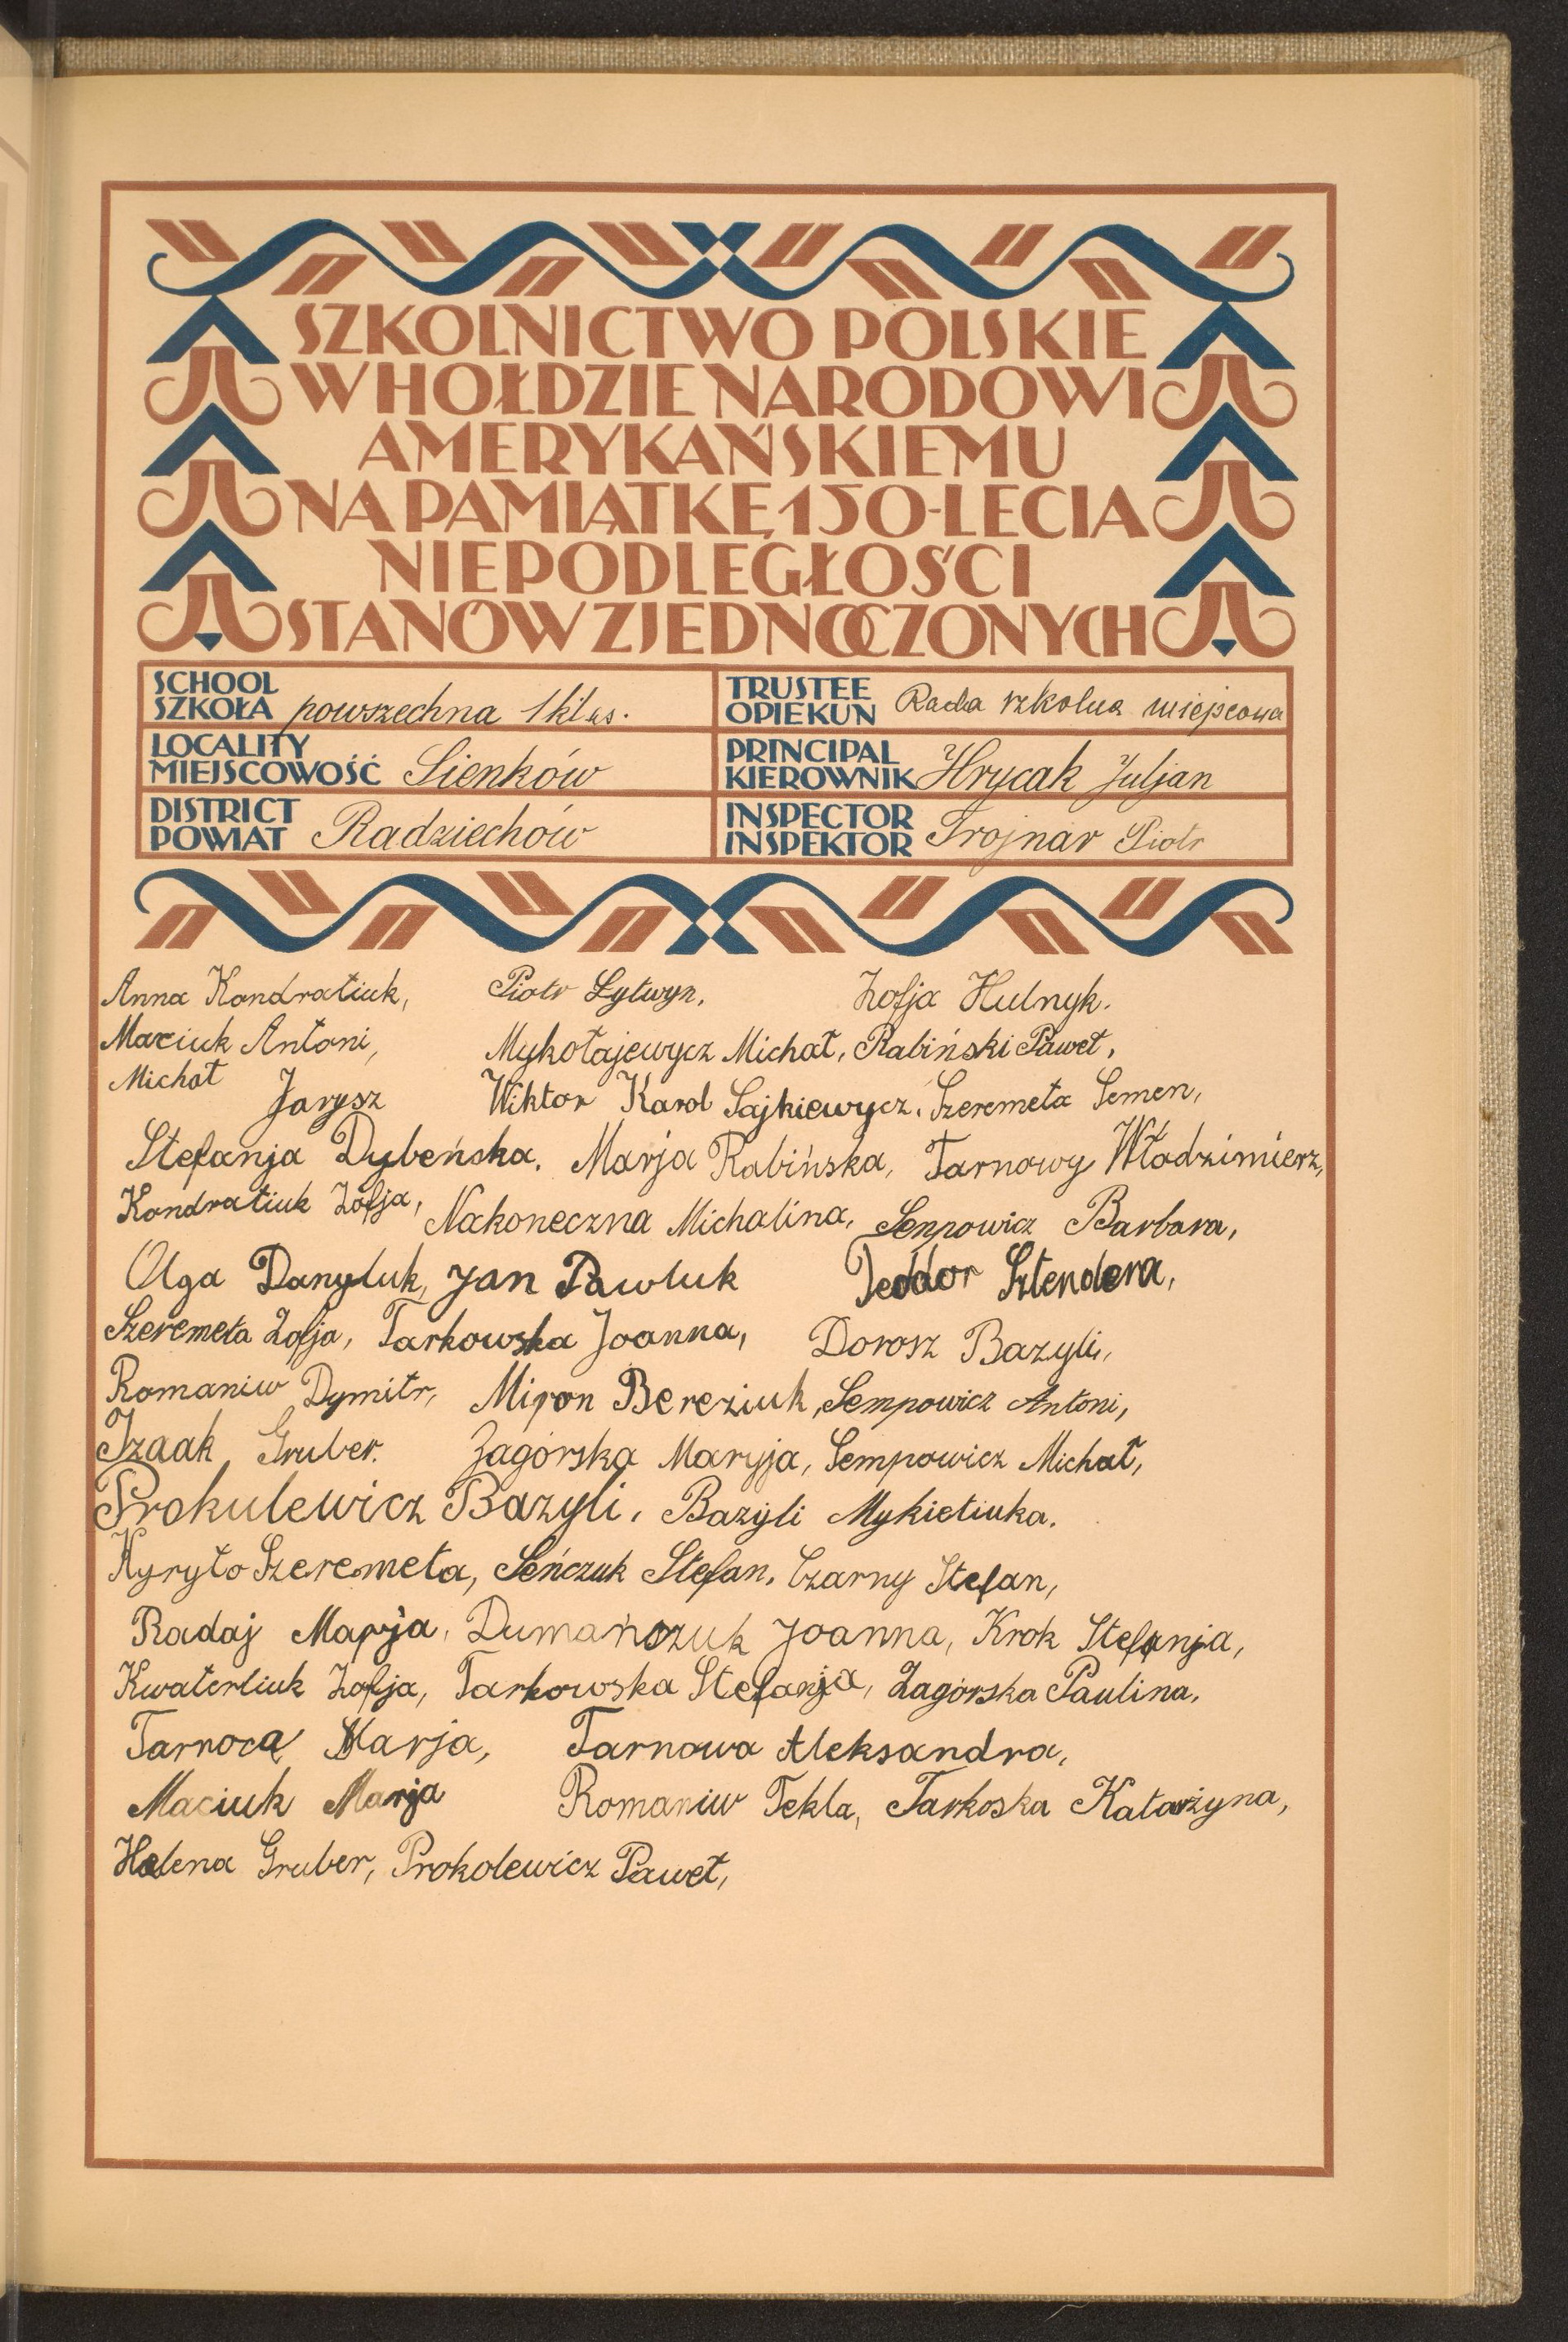 SZKOLNICTWO POLSKIE
W HOŁDZIE NARODOWI
AMERYKAŃSKIEMU
NA PAMIĄTKĘ 150-LECIA
NIEPODLEGŁOŚCI
STANÓW ZJEDNOCZONYCH
SCHOOL
SZKOŁA powszechna 1 klas.
TRUSTEE
OPIEKUN Rada szkolna miejscowa
LOCALITY
MIEJSCOWOŚĆ Sienków
PRINCIPAL
KIEROWNIK Hrycak Juljan
DISTRICT
POWIAT Radziechów
INSPECTOR
INSPEKTOR Trojnar Piotr
Anna Kondratiuk, Piotr Łytwyn. Zofja Hulnyk.
Maciuk Antoni, Mykołajewycz Michał, Rabiński Paweł,
Michał Jarysz Wiktor Karol Sajkiewycz. Szeremeta Semen,
Stefanja Dybeńska. Marja Rabińska, Tarnowy Włodzimierz,
Kondratiuk Zofja, Nakoneczna Michalina, Senpowicz Barbara,
Olga Danyluk, Jan Pawluk Teodor Sztendera,
Szeremeta Zofja, Tarkowska Joanna, Dorosz Bazyli,
Romaniw Dymitr, Miron Bereziuk, Sempowicz Antoni,
Izaak Gruber. Zagórska Maryja, Sempowicz Michał,
Prokulewicz Bazyli, Bazyli Mykietiuka.
Kyryło Szeremeta, Seńczuk Stefan, Czarny Stefan,
Radaj Maryja, Dumańczuk Joanna, Krok Stefanja,
Kwaterliuk Zofja, Tarkowska Stefanja, Zagórska Paulina,
Tarnoca Marja, Tarnowa Aleksandra,
Maciuk Marja Romaniw Tekla, Tarkoska Katarżyna,
Helena Gruber, Prokolewicz Paweł,